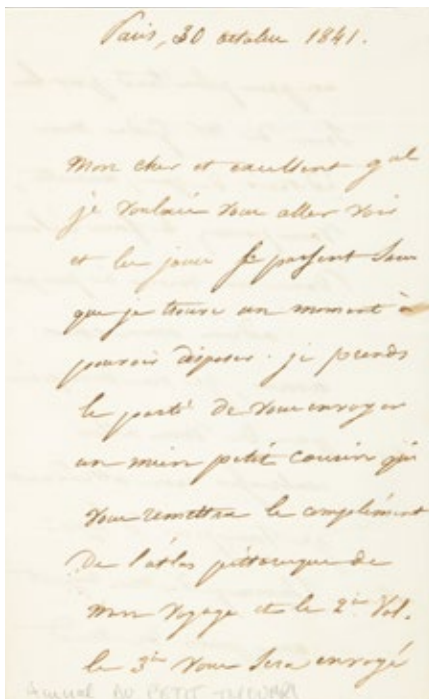 Paris, 30 octobre 1841.
Mon cher et excellent gal
je voulais vous aller voir
et les jours se passent sans
que je trouve un moment à
pouvoir disposer. je prends
le parti de vous envoyer
un mien petit cousin qui
vous remettra le complément
De l'atlas pittoresque de
mon voyage et le 2e Vol.
le 3e vous sera envoyé
Amiral DU PETIT-THOUARS